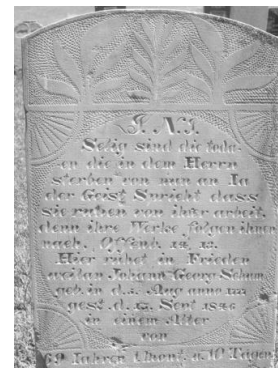 J. N. J.
Selig sind die toda-
en die in dem Herrn
sterben von nun an Ia
der Geist Spricht dass
sie ruhen von ihrer arbeit,
denn ihre Werke folgen ihnen
nach. Offenb. 14, 13.
Hier ruhet in Frieden
weilan Johann Georg
geb. in d. 5. Aug anno
gest d. 15. Sept 1846
in einem Alter
von
69 Iahren 1 mont. u. 10 Tagen